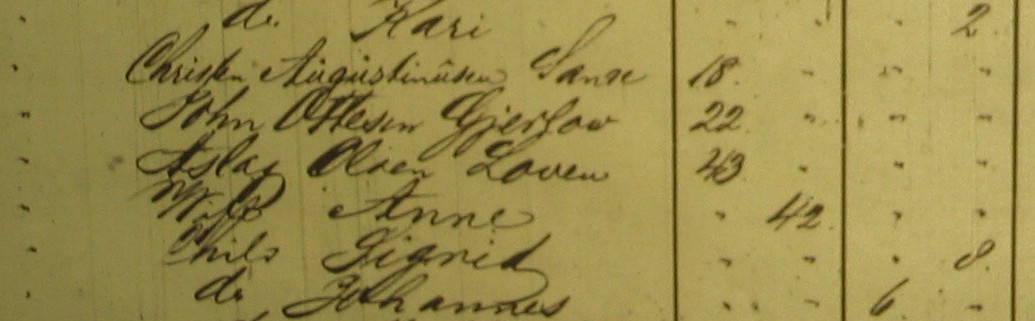 do. Kari " " " 2
Christen Augustinusen Sanse 18. " " "
John Ottesen Gjerlow 22 " " "
Aslag Olsen Loven 43 " " "
Wife Anne " 42. " "
Chils Sigrid " " " 8.
do Johannes " " 6 "